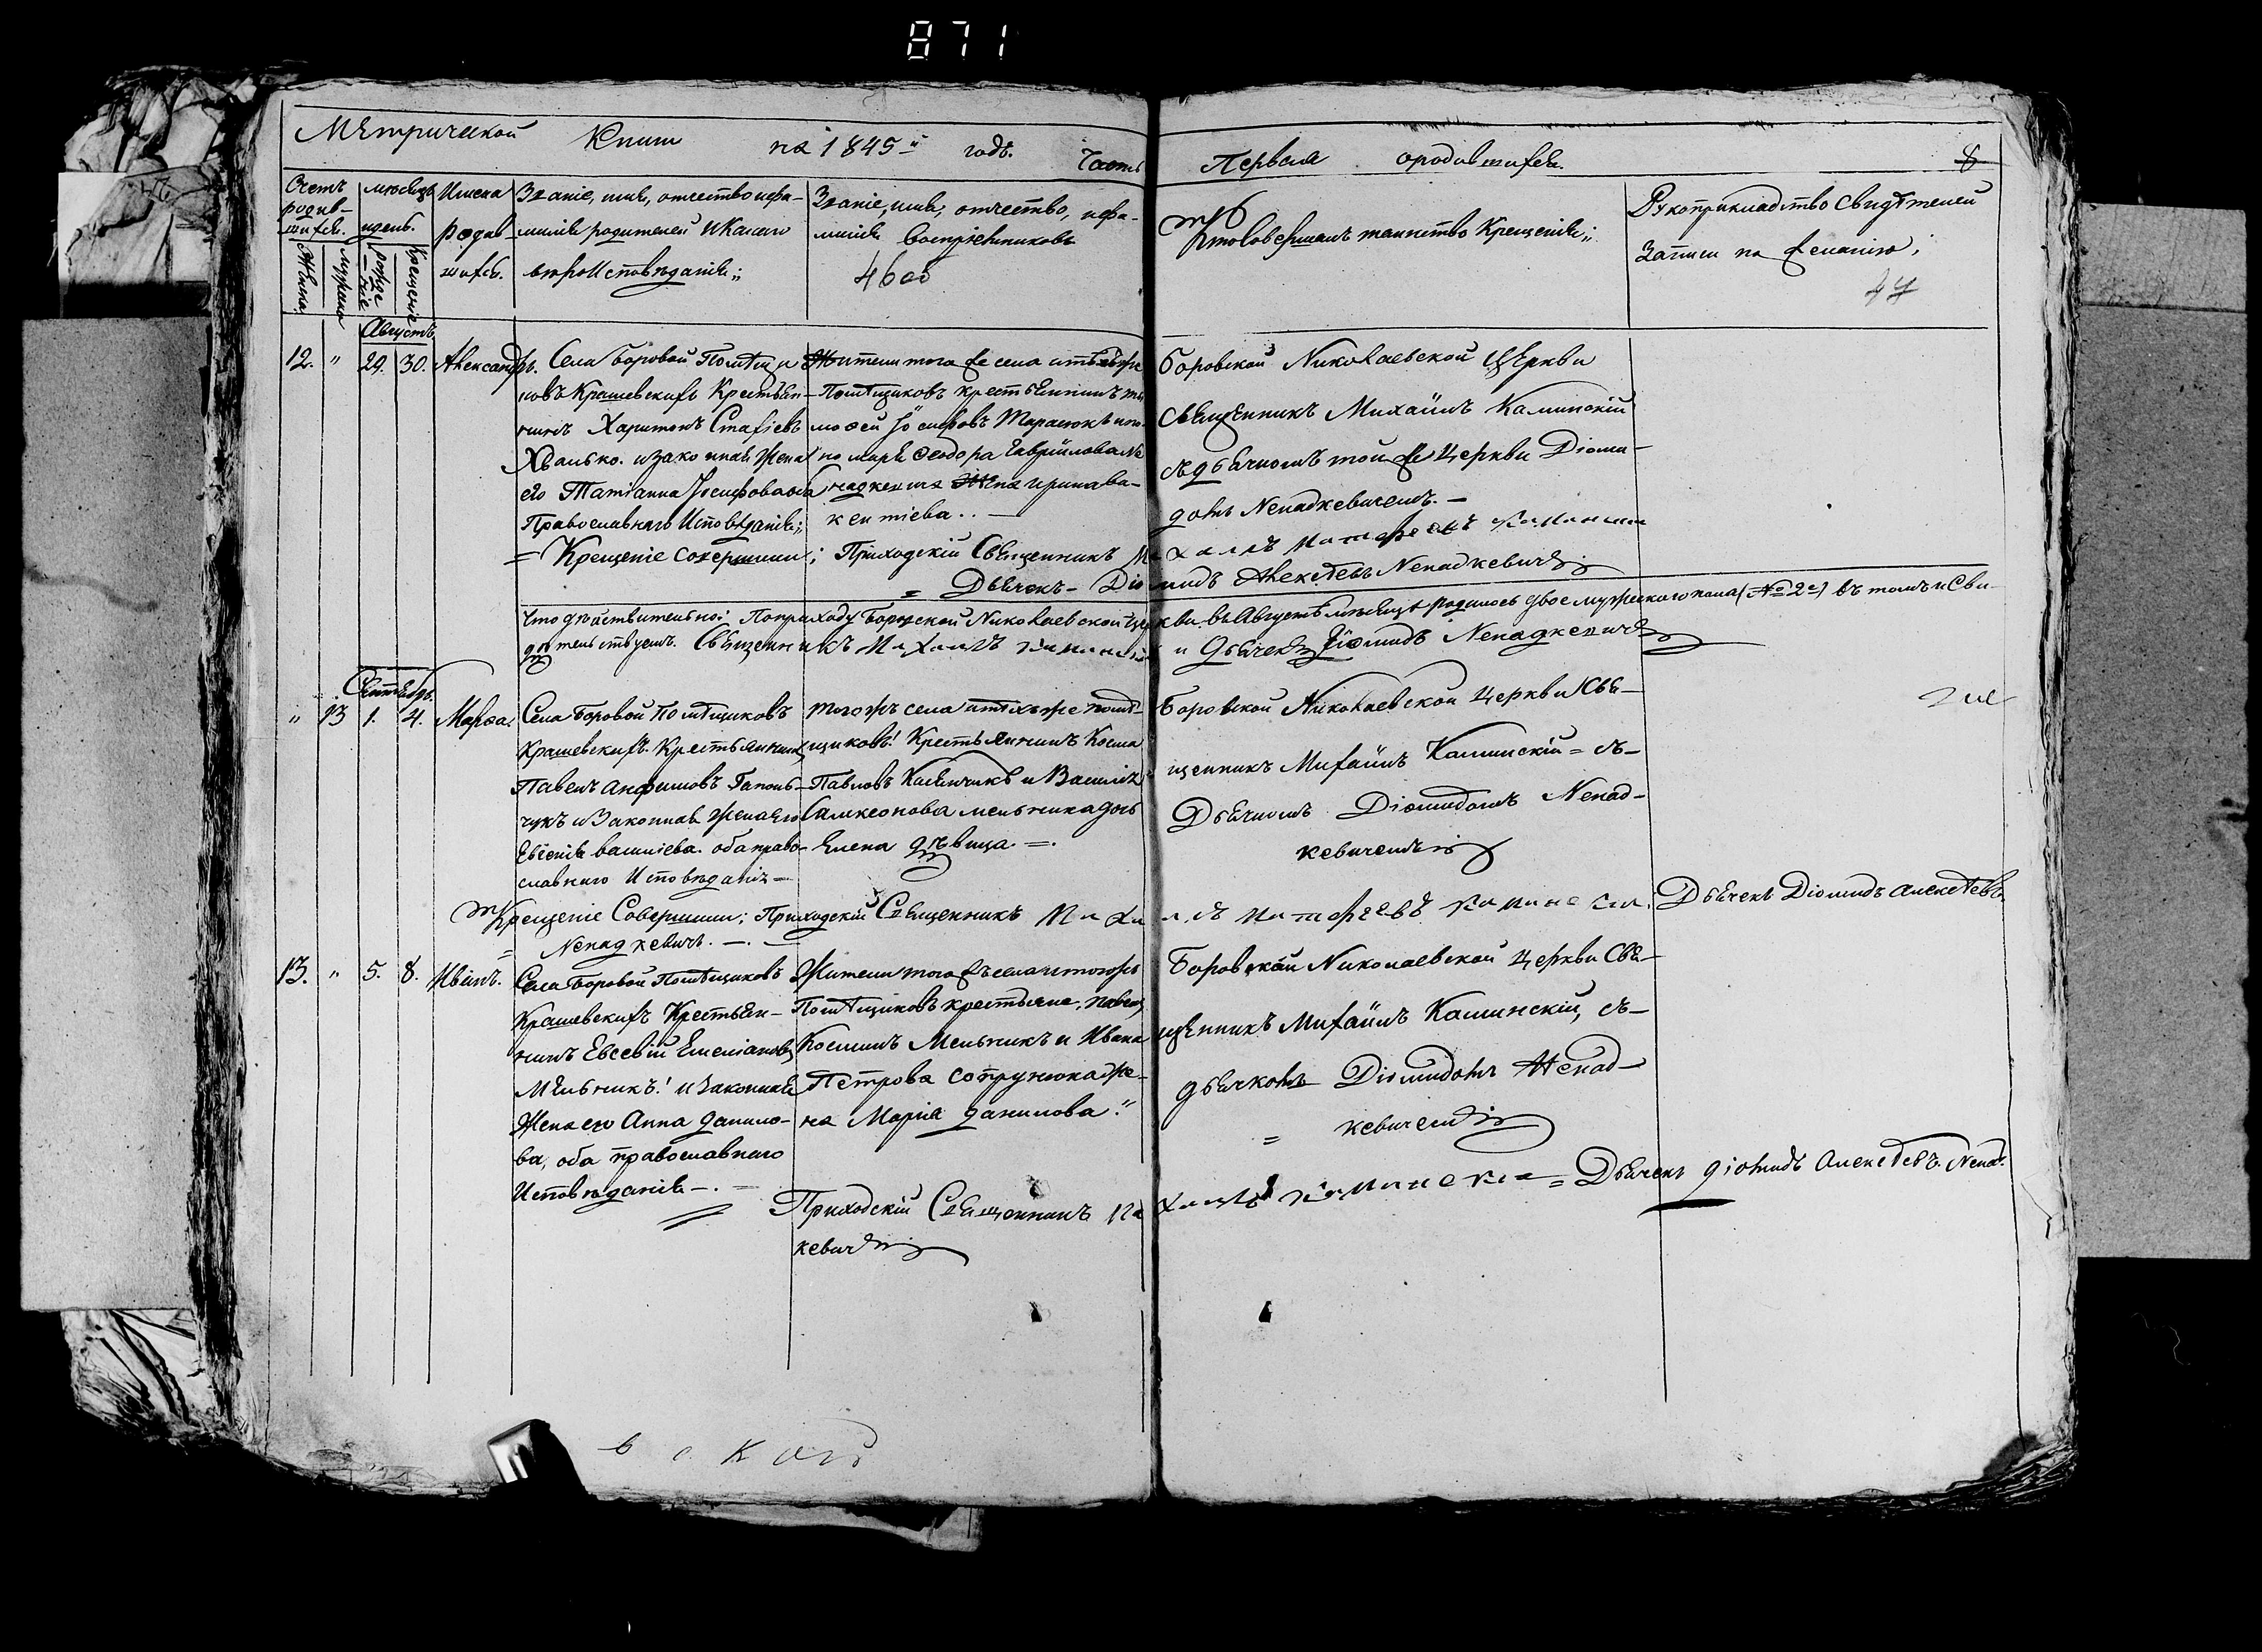 871
Метрической Книги на 1845й годъ. Часть Первая о родившихся. 8
Счетъ родив-шихся.
мѣсяцъ и день.
Имена родив-шихъ.
Званіе, имя, отчество и фа-
милія родителей и какого
вѣроисповѣданія;
Званіе, имя, отчество, и фа-
милія воспріемниковъ
4600
Кто совершалъ таинство Крещенія;
Рукоприкладство свидѣтелей
записи по желанію;
47
рожде-ніе
Крещеніе
Августъ
12. " 29. 30. Александръ.
Села Боровой Помѣщи
ковъ Крашевскихъ Крестьян-
нинъ Харитонъ Стафіевъ
Хвалько. и законная Жена
его Татіанна Іосифова оба
Православнаго Исповѣданія;
Жители того же села
Помѣщиковъ крестьянинъ
мофей Іосифовъ Тарасюкъ
Феодора Гавріилова Не
надкевича Жена ирина ва-
кентіева..
Боровской Николаевской Церкви
священникъ Михаилъ Каминскій
съ дьячкомъ той же Церкви Діоми-
домъ Ненадкевичемъ.
= Крещеніе совершили; Приходскій Священникъ Михаилъ Матфеевъ Каминский
= Дьячекъ - Діомидъ Алексѣевъ Ненадкевичъ
Что дѣйствительно: По приходу Боровской Николаевской церкви въ Августѣ мѣсяцѣ родилось двое мужескаго пола (№ 2й) въ томъ и Сви-
дѣтельствуемъ. Священникъ Михаилъ Каминский и Дьячекъ Діомидъ Ненадкевичъ
Сентябрь.
" 13 1. 4. Марѳа.
Села Боровой Помѣщиковъ
Крашевскихъ. Крестьянинъ
Павелъ Анфимовъ Гапонь-
чукъ и Законная Жена его
Евгенія василіева. оба право-
славнаго Исповѣданія
Того жъ села и тѣхъ же помѣ-
щиковъ! Крестьянинъ Косма
Павловъ и Василія
Самсонова мельника дочь
Елена дѣвица. =.
Боровской Николаевской Церкви Свя-
щенникъ Михаилъ Каминскій = съ-
Дьячкомъ Діомидомъ Ненад-
кевичемъ
Крещеніе Совершили; Приходскій Священникъ Михаилъ Матфеевъ Каминский. Дьячекъ Діомидъ Алексѣевъ
= Ненадкевичъ.
13. " 5. 8. Иванъ.
Села Боровой Помѣщиковъ
Крашевскихъ Крестьян-
нинъ Евсевій Емеліановъ
Мельникъ! и Законная
Жена его Анна Данило-
ва, оба православнаго
Исповѣданія
Жители того жъ села и того жъ
Помѣщиковъ крестьяне, Павелъ
Косминъ Мельникъ и Ивана
Петрова Сопрунюка же-
на Марія Данилова."
Боровской Николаевской Церкви Свя-
щенникъ Михаилъ Каминскій, съ-
дьячкомъ Діомидомъ Ненад-
= кевичемъ
Приходскій Священникъ Михаилъ Каминский = Дьячекъ Діомидъ Алексѣевъ. Ненад-
кевичъ